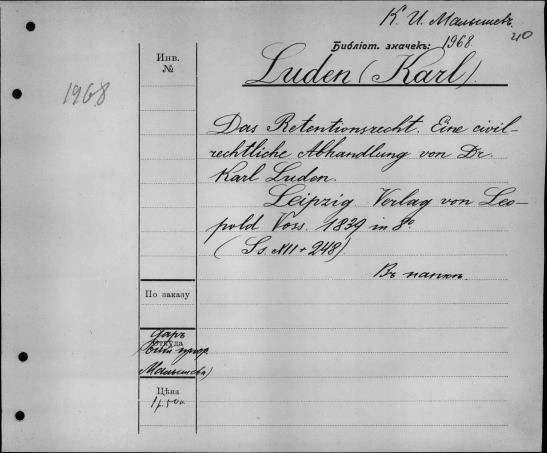 К. И. Малышев.
40
Библіот. значекъ: 1968.
Инв.
№
Luden (Karl).
1968
Das Retentionsrecht. Eine civil-
rechtliche Abhandlung von Dr.
Karl Luden.
Leipzig. Verlag von Leo-
pold Voss. 1839 in 8°
(Ss. + 248).
Въ папкѣ.
По заказу
Даръ
Откуда
Малышева)
Цѣна